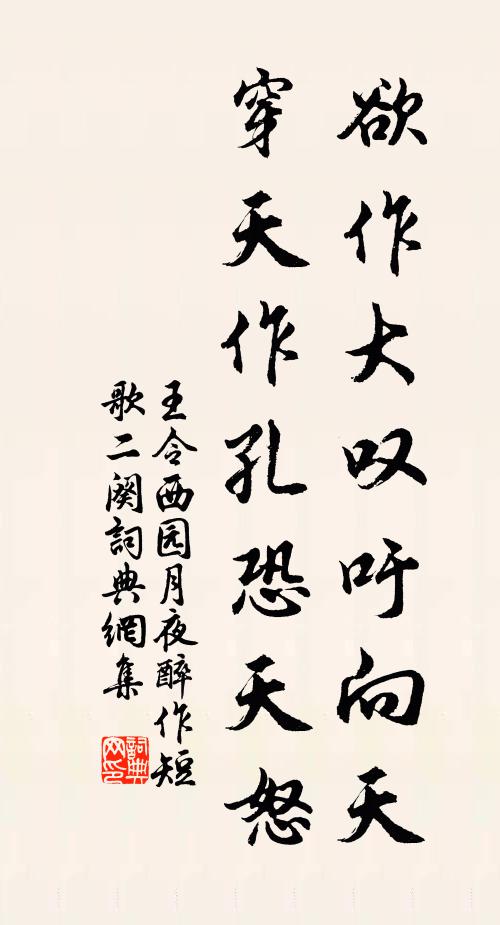 欲作大叹吁向天
穿天作孔恐天怒
王令西园月夜醉作短
歌二阕詞典網集
詞典
网印